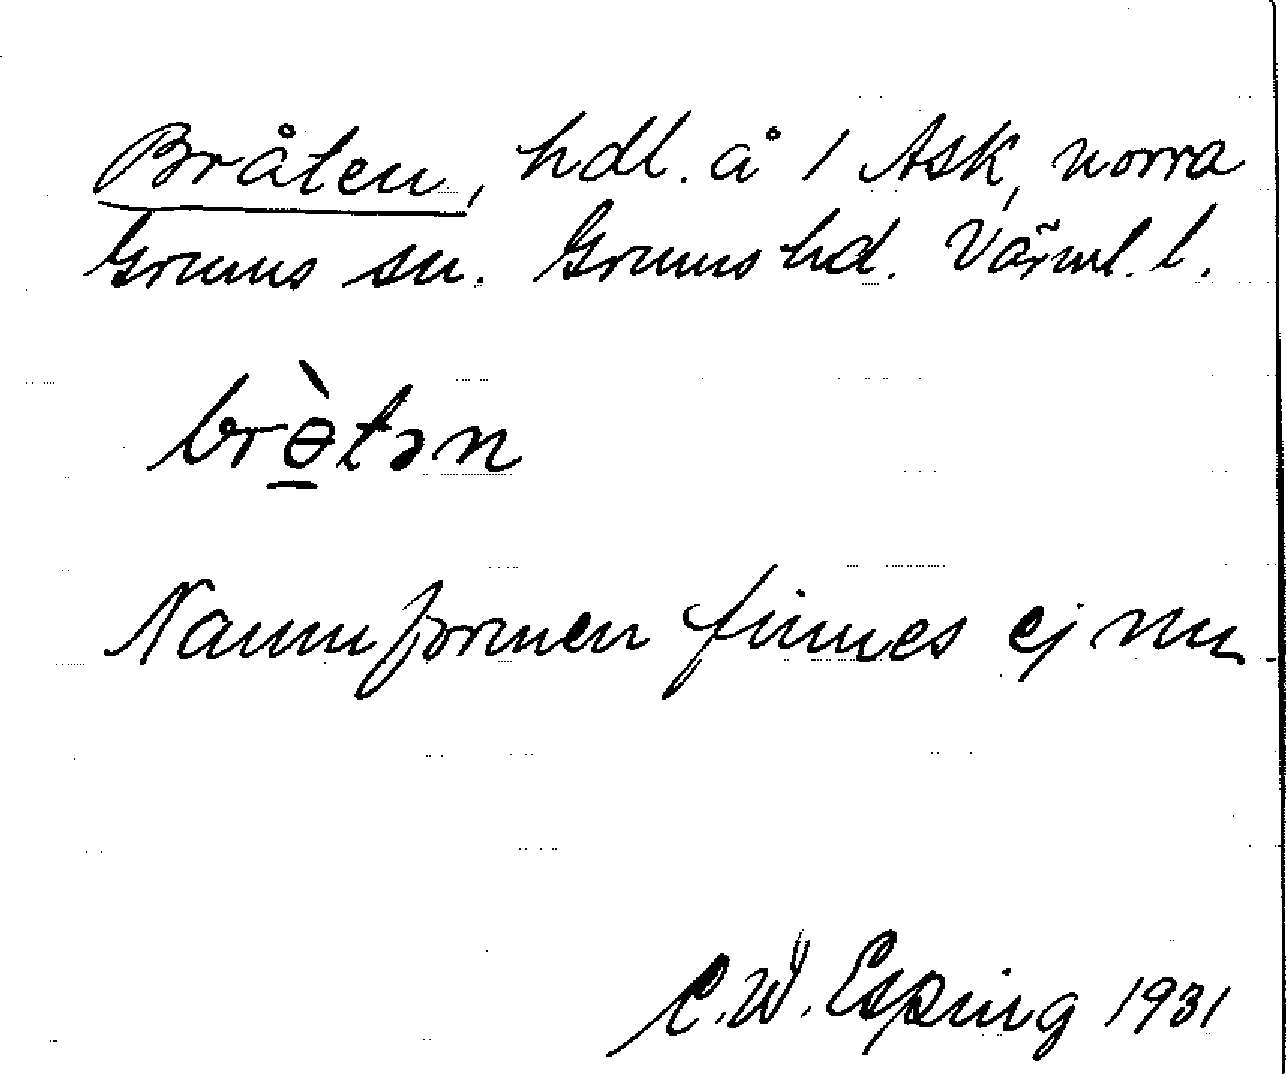 Bråten, hdl. å 1 Ask, norra
Grums sn. Grums hd. Värml. l.
brɵ̀tən
Namnformen finnes ej nu
C.W. Esping 1931